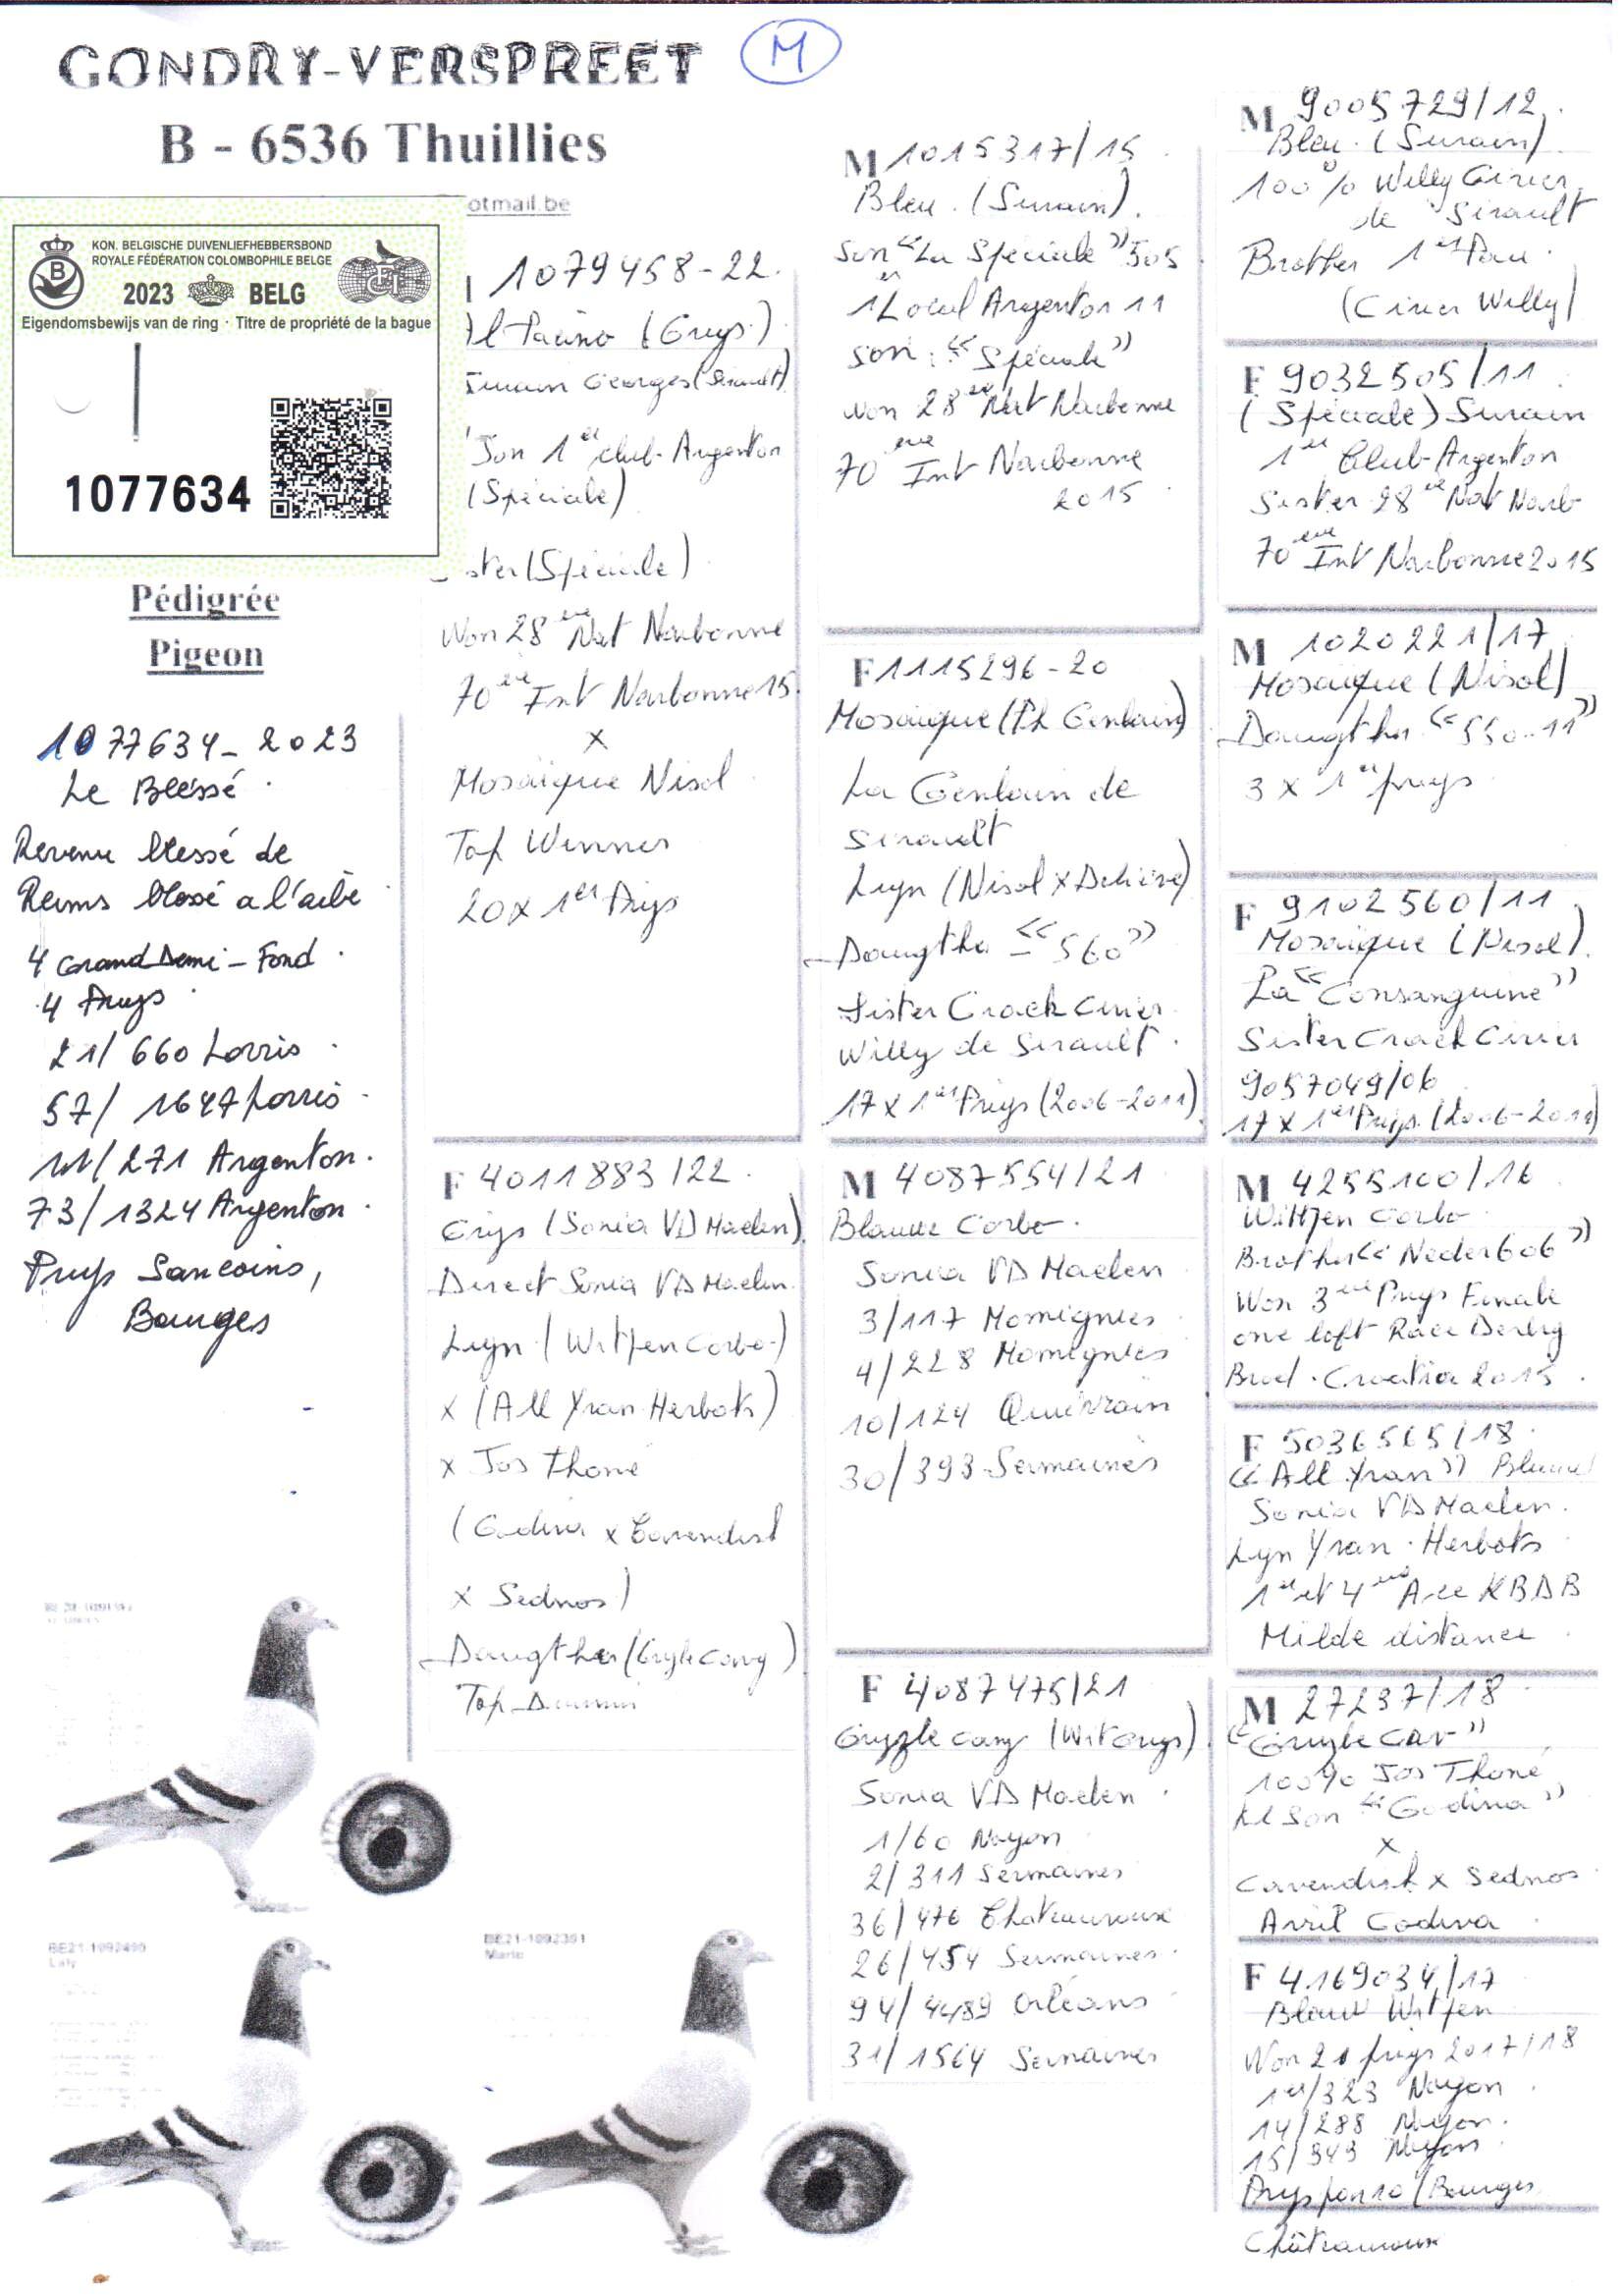 GONDRY-VERSPREET
M
B - 6536 Thuillies
otmail.be
KON. BELGISCHE DUIVENLIEFHEBBERSBOND
ROYALE FÉDÉRATION COLOMBOPHILE BELGE
2023 BELG
Eigendomsbewijs van de ring · Titre de propriété de la bague
1077634
Pédigrée
Pigeon
1077634-2023
Le Bléssé
Revenu blessé de
Reims blessé a l'aile
4 Grand Demi-Fond
4 Prys
21/660 Lorris
57/1647 Lorris
/271 Argenton
73/1324 Argenton
Prys Sancoins,
Bourges
1079458-22
Al Pacino (Grys)
Surain Georges (Sirault)
Son 1er club-Argenton
(Spéciale)
ster (Spéciale)
Won 28ème Nat Narbonne
70ème Int Narbonne 15
x
Mosaïque Nisol
Top Winner
20x1er Prys
F 4011883/22
Grys (Sonia VD Maelen)
Direct Sonia VD Maelen
Lyn (Witpen Corbo)
x (All Yran Herbots)
x Jos Thoné
(Godiva x Cavendish
x Sednos)
Daugther (Gryzle Cavy)
Top
M 1015317/15
Bleu. (Surain).
Son "La Spéciale" 505
1er Local Argenton 11
son: "Spéciale"
won 28ème Nat Narbonne
70ème Int Narbonne
2015
F 1115296-20
Mosaïque (Ph Genlain)
La Genlain de
Sirault
Lyn (Nisol x Delière)
Daugther - "560"
Sister Crack Cirier
Willy de Sirault
17x1er Prys (2006-2011)
M 4087554/21
Blauw Corbo
Sonia VD Maelen
3/117 Momignies
4/228 Momignies
10/124 Quiévrain
30/393 Sermaines
F 4087475/21
Gryzle cavy (Wit Grys)
Sonia VD Maelen
1/60 Noyon
2/311 Sermaines
36/476 Chateauroux
26/454 Sermaines
94/4489 Orléans
31/1564 Sermaines
M 9005729/12
Bleu. (Surain)
100% Willy Cirier
de Sirault
Brother 1er Pau
(Cirier Willy)
F 9032505/11
(Spéciale) Surain
1er Club-Argenton
Sister 28ème Nat Narb
70ème Int Narbonne 2015
M 1020221/17
Mosaïque (Nisol)
Daugther "550-11"
3x1er prys
F 9102560/11
Mosaïque (Nisol)
La "Consanguine"
Sister Crack Cirier
9057049/06
17x1er Prys. (2006-2011)
M 4255100/16
Witpen Corbo
Brother "Neder 606"
Won 3ème Prys Finale
one loft Race Derby
Croatia 2015
F 5036565/18
"All Yran" Blauw
Sonia VD Maelen
Lyn Yran-Herbots
1er et 4ème Ace KBDB
Milde distance
M 27237/18
"Gryzle Cav"
100% Jos Thoné
kl Son "Godiva"
x
Cavendish x Sednos
Avril Godiva
F 4169034/17
Blauw Witpen
Won 21 prys 2017/18
1er/323 Noyon
14/288 Noyon
15/343 Noyon
Prys par 10 (Bourges
Châteauroux
BE21-1092490
BE21-1092391